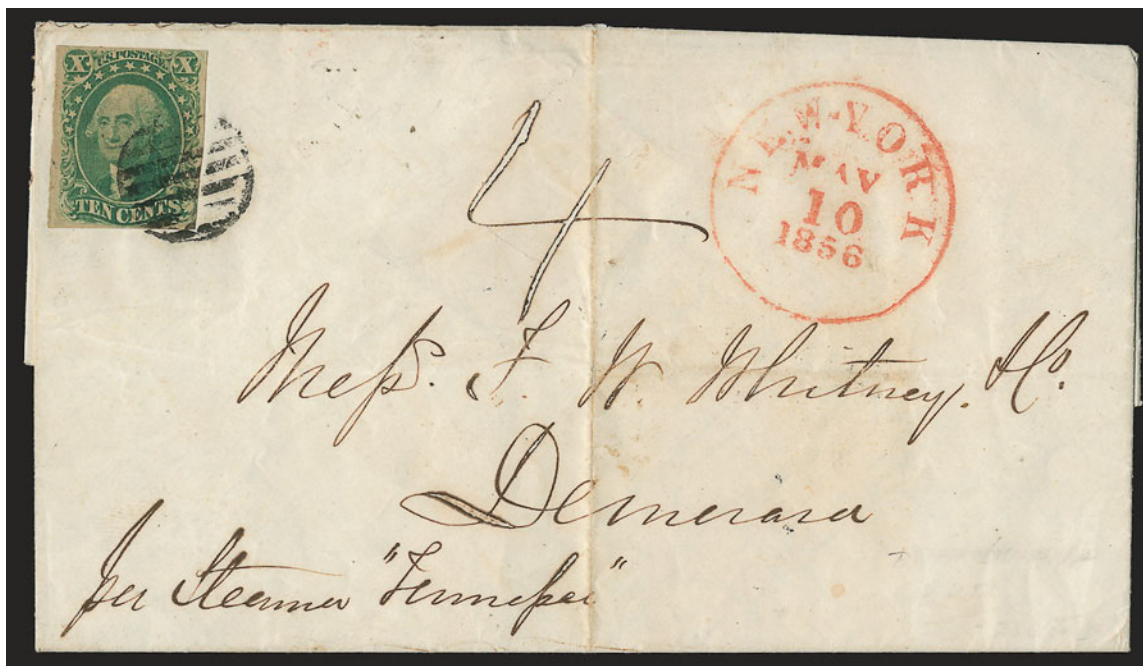 X U.S. POSTAGE X
TEN CENTS
4
NEW-YORK
MAY
10
1856
Messs. F. W. Whitney. & Co.
Demerara
per Steamer "Tennessee"